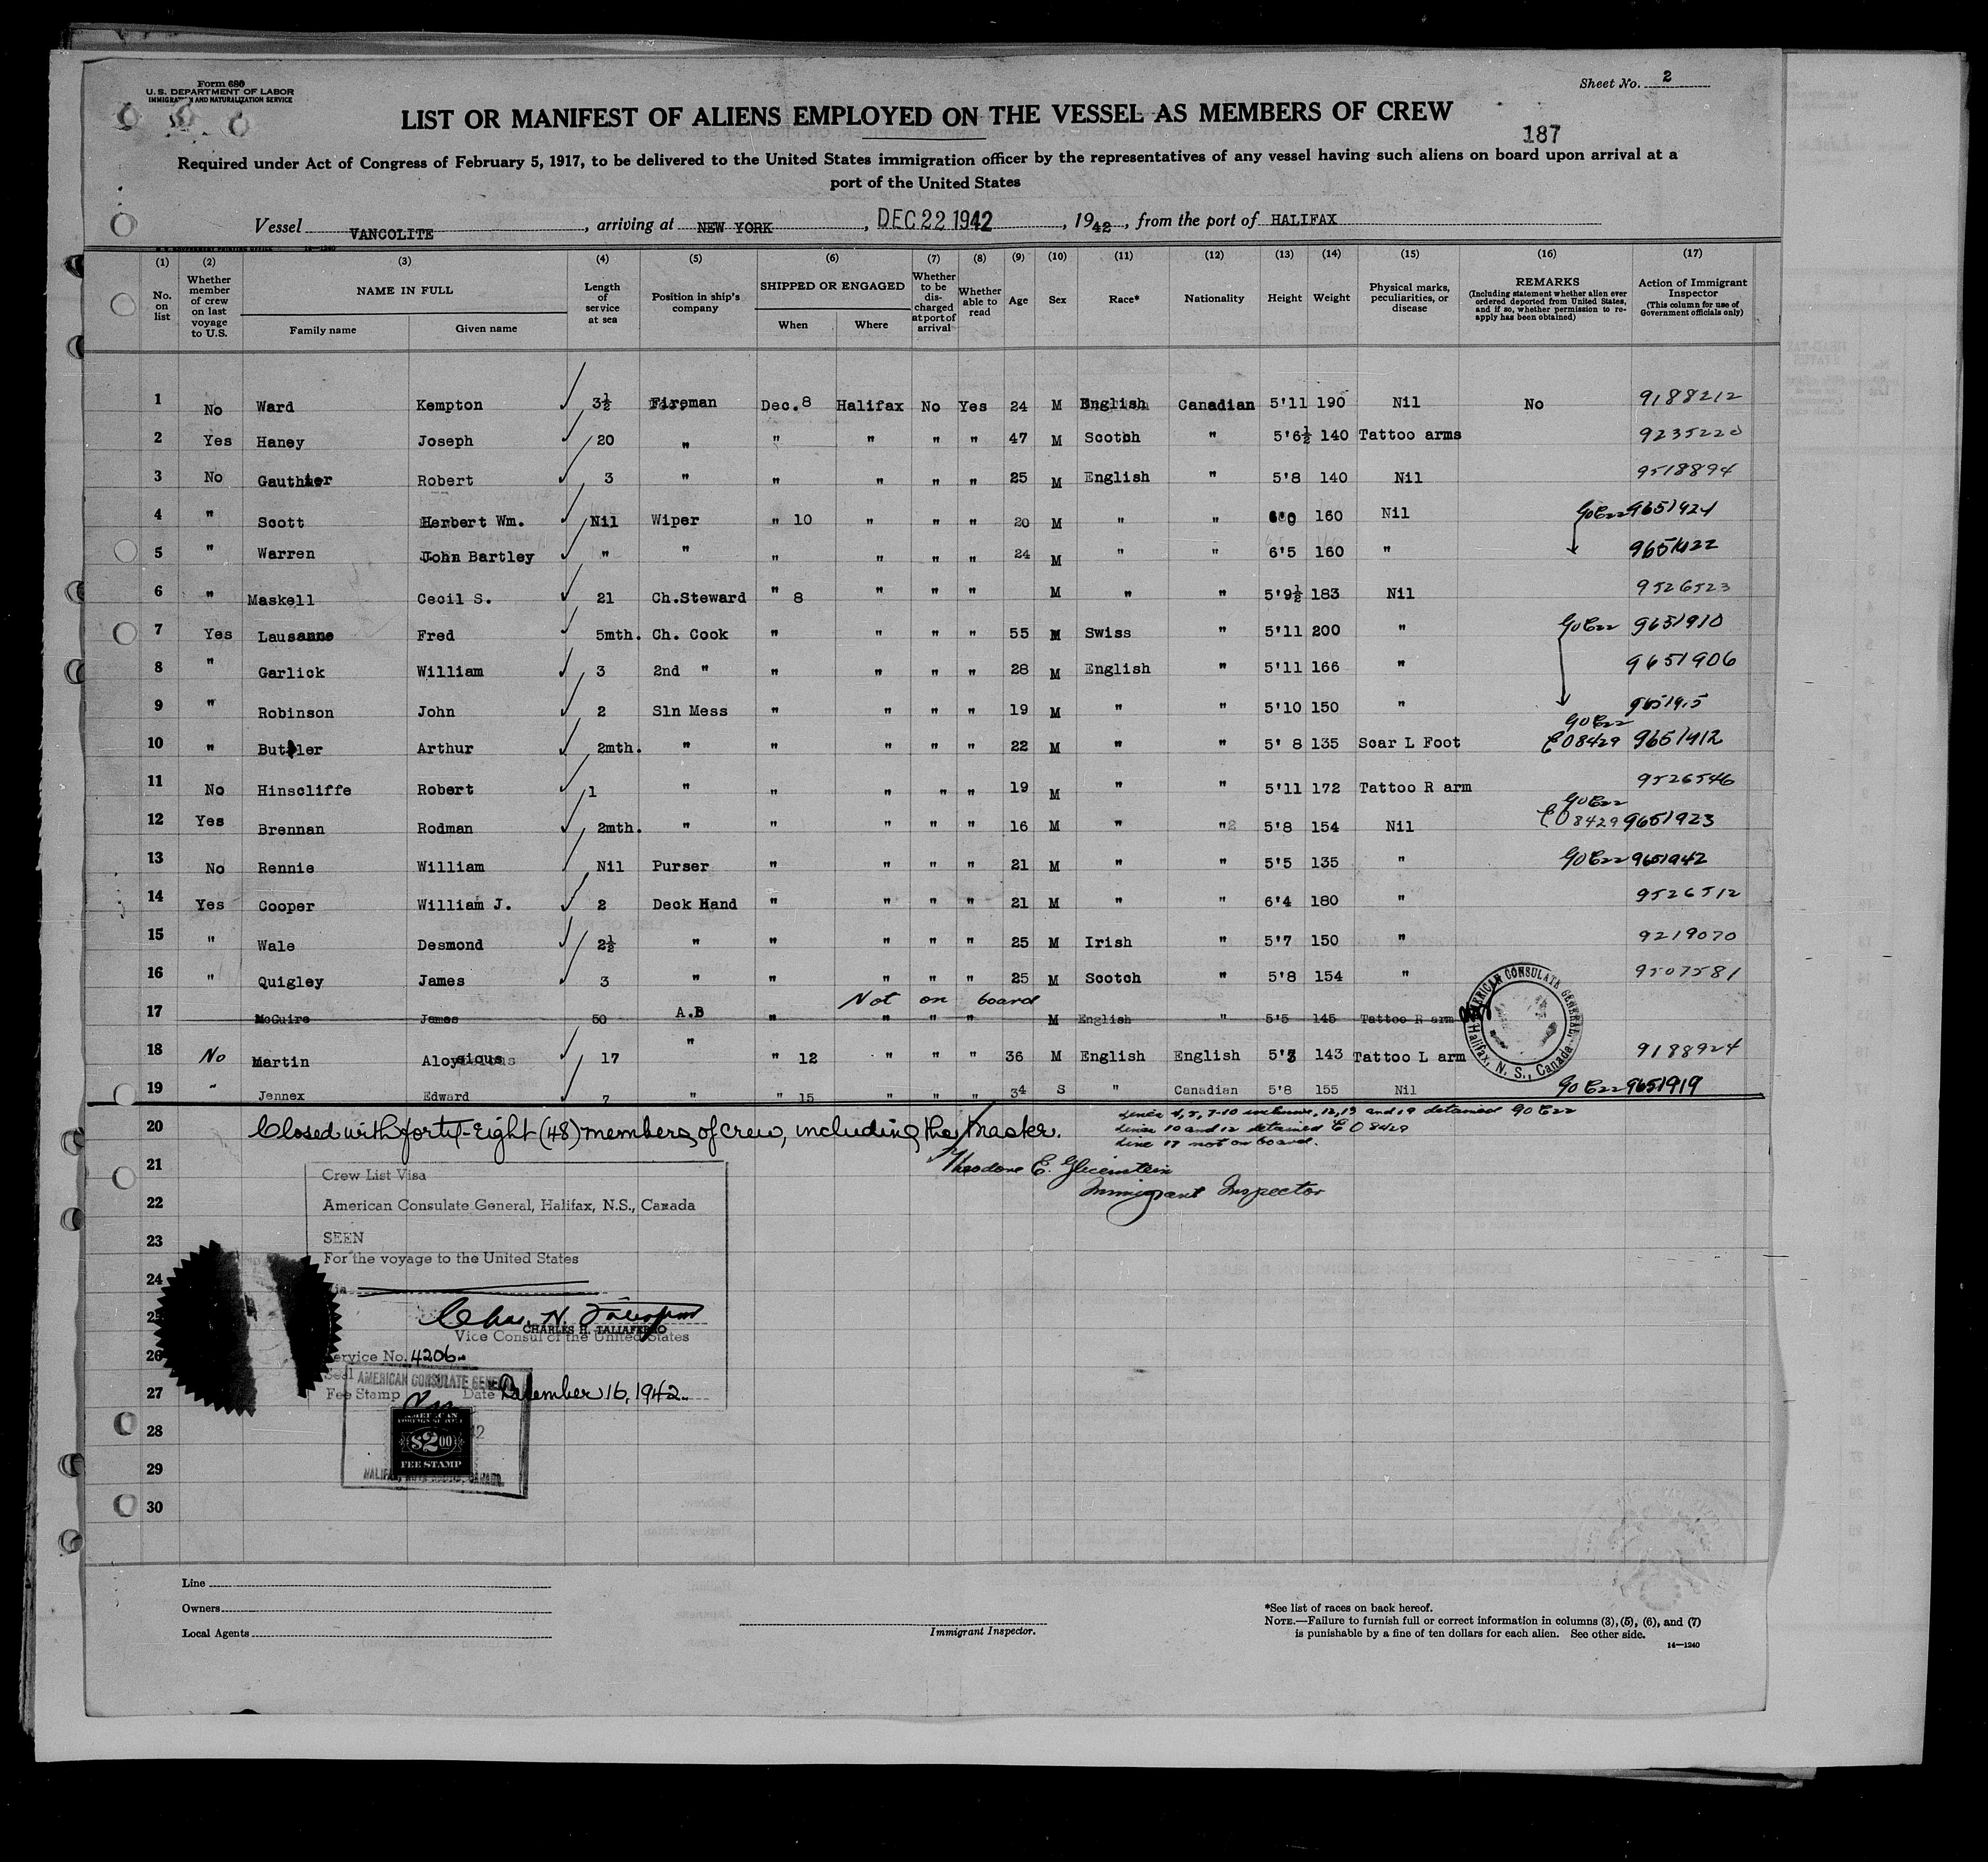 Form 680
U.S. DEPARTMENT OF LABOR
IMMIGRATION AND NATURALIZATION SERVICE
Sheet No. 2
LIST OR MANIFEST OF ALIENS EMPLOYED ON THE VESSEL AS MEMBERS OF CREW
187
Required under Act of Congress of February 5, 1917, to be delivered to the United States immigration officer by the representatives of any vessel having such aliens on board upon arrival at a
port of the United States
Vessel VANCOLITE, arriving at NEW YORK, DEC 22 1942, 1942, from the port of HALIFAX
(1) (2) (3) (4) (5) (6) (7) (8) (9) (10) (11) (12) (13) (14) (15) (16) (17)
No. on list
Whether member of crew on last voyage to U.S.
NAME IN FULL
Family name Given name
Length of service at sea
Position in ship's company
SHIPPED OR ENGAGED
When Where
Whether to be discharged at port of arrival
Whether able to read
Age
Sex
Race*
Nationality
Height
Weight
Physical marks, peculiarities, or disease
REMARKS
(Including statement whether alien ever ordered deported from United States, and if so, whether permission to reapply has been obtained)
Action of Immigrant Inspector
(This column for use of Government officials only)
1 No Ward Kempton 3½ Fireman Dec. 8 Halifax No Yes 24 M English Canadian 5'11 190 Nil No 9188212
2 Yes Haney Joseph 20 " " " " " 47 M Scotch " 5'6½ 140 Tattoo arms 9235220
3 No Gauthier Robert 3 " " " " " 25 M English " 5'8 140 Nil 9518894
4 " Scott Herbert Wm. Nil Wiper " 10 " " " 20 M " " 160 Nil 9651424
5 " Warren John Bartley " " " " " " 24 M " " 6'5 160 " 9651422
6 " Maskell Cecil S. 21 Ch.Steward " 8 " " " M " " 5'9½ 183 Nil 9526523
7 Yes Lausanne Fred 5mth. Ch. Cook " " " " 55 M Swiss " 5'11 200 " 9651910
8 " Garlick William 3 2nd " " " " " 28 M English " 5'11 166 " 9651906
9 " Robinson John 2 Sln Mess " " " " 19 M " " 5'10 150 " 9651915
10 " Butler Arthur 2mth. " " " " " 22 M " " 5' 8 135 Scar L Foot EO 8429 9651912
11 No Hinscliffe Robert 1 " " " " " 19 M " " 5'11 172 Tattoo R arm 9526546
12 Yes Brennan Rodman 2mth. " " " " " 16 M " " 5'8 154 Nil EO 8429 9651923
13 No Rennie William Nil Purser " " " " 21 M " " 5'5 135 " 9651942
14 Yes Cooper William J. 2 Deck Hand " " " " 21 M " " 6'4 180 " 9526512
15 " Wale Desmond 2½ " " " " " 25 M Irish " 5'7 150 " 9219070
16 " Quigley James 3 " " " " " 25 M Scotch " 5'8 154 " 9507581
Not on board
17 McGuire James 50 A.B " " " " M English " 5'5 145 Tattoo R arm
18 No Martin Aloysious 17 " " 12 " " " 36 M English English 5'3 143 Tattoo L arm 9188924
19 " Jennex Edward 7 " " 15 " " " 34 S " Canadian 5'8 155 Nil 9651919
AMERICAN CONSULATE GENERAL
Halifax, N. S., Canada
20 Closed with forty-eight (48) members of crew, including the Master.
Lines 4, 5, 7-10 inclusive, 12, 13 and 19 detained
Lines 10 and 12 detained EO 8429
Line 17 not on board.
Immigrant Inspector
21
Crew List Visa
22 American Consulate General, Halifax, N.S., Canada
23 SEEN
For the voyage to the United States
24
25
CHARLES H. TALIAFERRO
Vice Consul of the United States
26 Service No. 4206
Seal AMERICAN CONSULATE GENERAL
27 Fee Stamp Date December 16, 1942
28
AMERICAN
FOREIGN SERVICE
$2.00
FEE STAMP
29
30
Line
Owners
Local Agents
Immigrant Inspector.
*See list of races on back hereof.
NOTE.—Failure to furnish full or correct information in columns (3), (5), (6), and (7)
is punishable by a fine of ten dollars for each alien. See other side.
14—1240